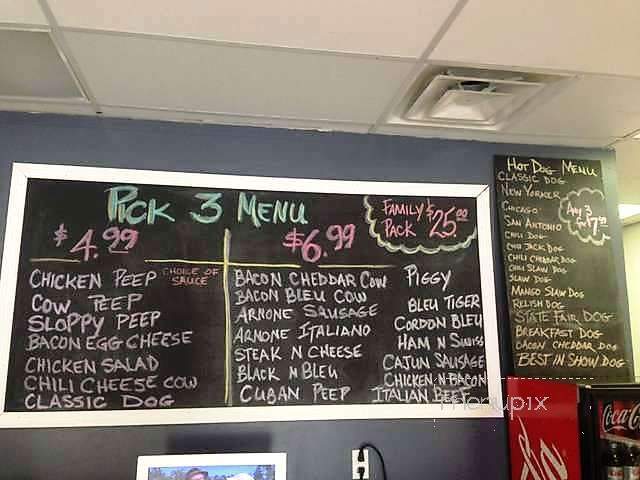 PICK 3 MENU
$4.99
CHOICE OF
SAUCE
CHICKEN PEEP
COW PEEP
SLOPPY PEEP
BACON EGG CHEESE
CHICKEN SALAD
CHILI CHEESE COW
CLASSIC DOG
$6.99
BACON CHEDDAR COW
BACON BLEU COW
ARNONE SAUSAGE
ARNONE ITALIANO
STEAK N CHEESE
BLACK N BLEU
CUBAN PEEP
FAMILY
PACK $25.00
PIGGY
BLEU TIGER
CORDON BLEU
HAM N SWISS
CAJUN SAUSAGE
CHICKEN-N-BACON
ITALIAN BEEF
HOT DOG MENU
CLASSIC DOG
NEW YORKER
CHICAGO
SAN ANTONIO
CHILI DOG
CHILI CHEDDAR DOG
CHILI SLAW DOG
SLAW DOG
MANGO SLAW DOG
RELISH DOG
STATE FAIR DOG
BREAKFAST DOG
BACON CHEDDAR DOG
BEST IN SHOW DOG
ANY 3
FOR $7.99
menupix
Coca-Co